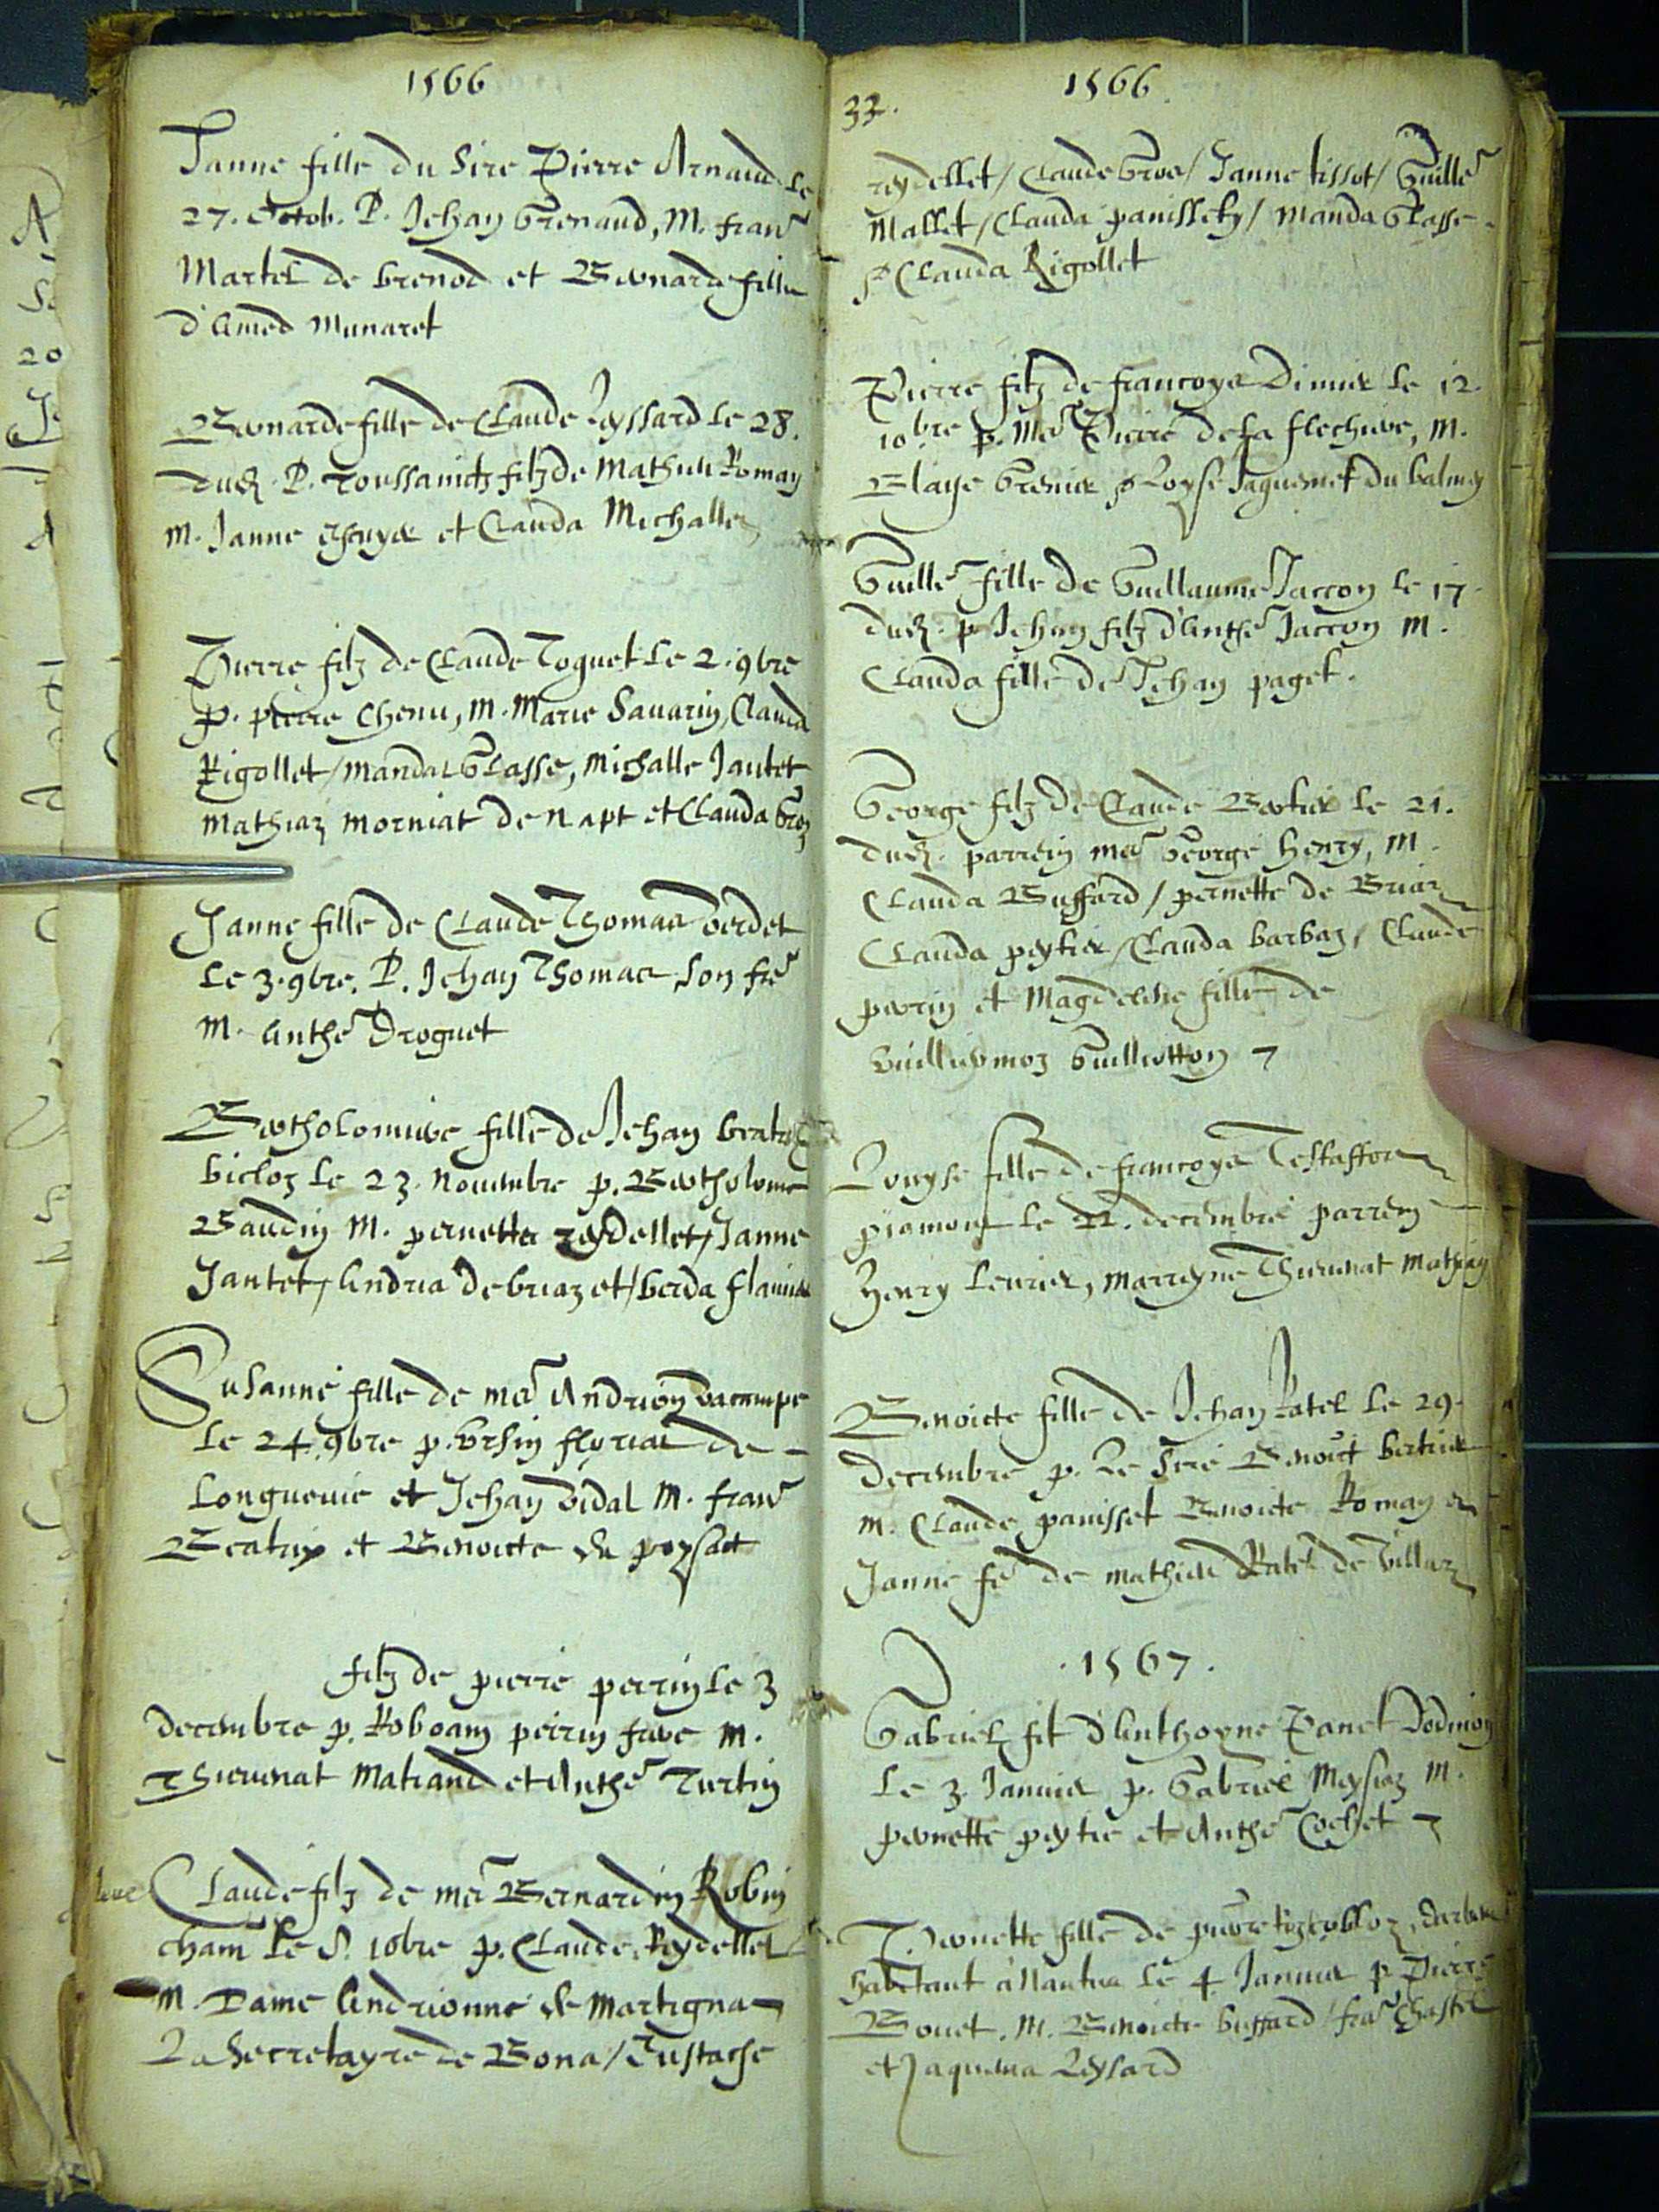 1566
Janne fille du Sire Pierre Arnaud le
27. Octob. P. Jehan Grenaud, M. fran
Martel de brenod et Bernarde fille
d'Amed Munaret
Bernarde fille de Claude Leyssard le 28.
dud. P. Toussainctz filz de Mathieu Romay
M. Janne et Clauda Michallet
Pierre filz de Claude Toguet le 2. 9bre
p. pierre Chenu, M. Marie Savarin, Clauda
Rigollet / manda Glasse, Michalle Jantet
mathiaz morniat de napt et Clauda Groz
Janne fille de Claude Thomas Verdet
le 3. 9bre. P. Jehan Thomas son fre
M. Anthe Droguet
Bertholomiere fille de Jehan
bicloz le 23. Novembre p. Bertholome
Baudin M. pernette reydellet / Janne
Jantet / Andria de briaz et / berda
Susanne fille de me Andrien
le 24. 9bre p. Ursin floriat de -
Longuevie et Jehan Vidal M. fran
Beatrix et Benoicte de poysat
filz de pierre perrin le 3
decembre p. Roboam perrin frere M.
Thievenat Matrand et Anthe Turtin
Claude filz de me Bernardin Robin
cham le 5. 10bre p. Claude Reydellet
M. Dame Andrionne de Martigna
La Secretayre de Bona / Eustache
1566.
33.
reydellet / Claude Groz / Janne tissot / Guille
Mallet / Clauda panisset / manda Glasse -
& Clauda Rigollet
Pierre filz de francoys Dimier le 12
10bre p. Me Pierre de la flechiere, M.
Elaye Grenier & Loyse Jaquemet du balmey
Guille fille de Guillaume Jarcon le 17
dud. p Jehan filz d'Anthe Jarcon M.
Clauda fille de Jehan paget.
George filz de Claude Bertier le 21.
dud. parrein me George Henry, M.
Clauda Buffard / pernette de Briaz
Clauda peytier / Clauda barbaz / Claude
perrin et Magdeleine fille de
Vuillermoz Guillotton
Louyse fille de francoys
piamont le 22. decembre parrein
Henry Levrier, marreyne Thievenat
Benoicte fille de Jehan Ratel le 29.
Decembre p. Le Sire Benoict bertrier
M. Claude panisset Benoicte Romay et
Janne fe de mathieu Ratel de Villar
. 1567 .
Gabriel fil d'Anthoyne Panet Dodmoy
le 3. Janvier p. Gabriel Meysiaz M.
pernette peytie et Anthe Cochet
Pernette fille de pierre
habitant a Nantua le 4 Janvier p. Pierre
Bouet. M. Benoicte buffard / fra Chastel
et Jaquema Leysard